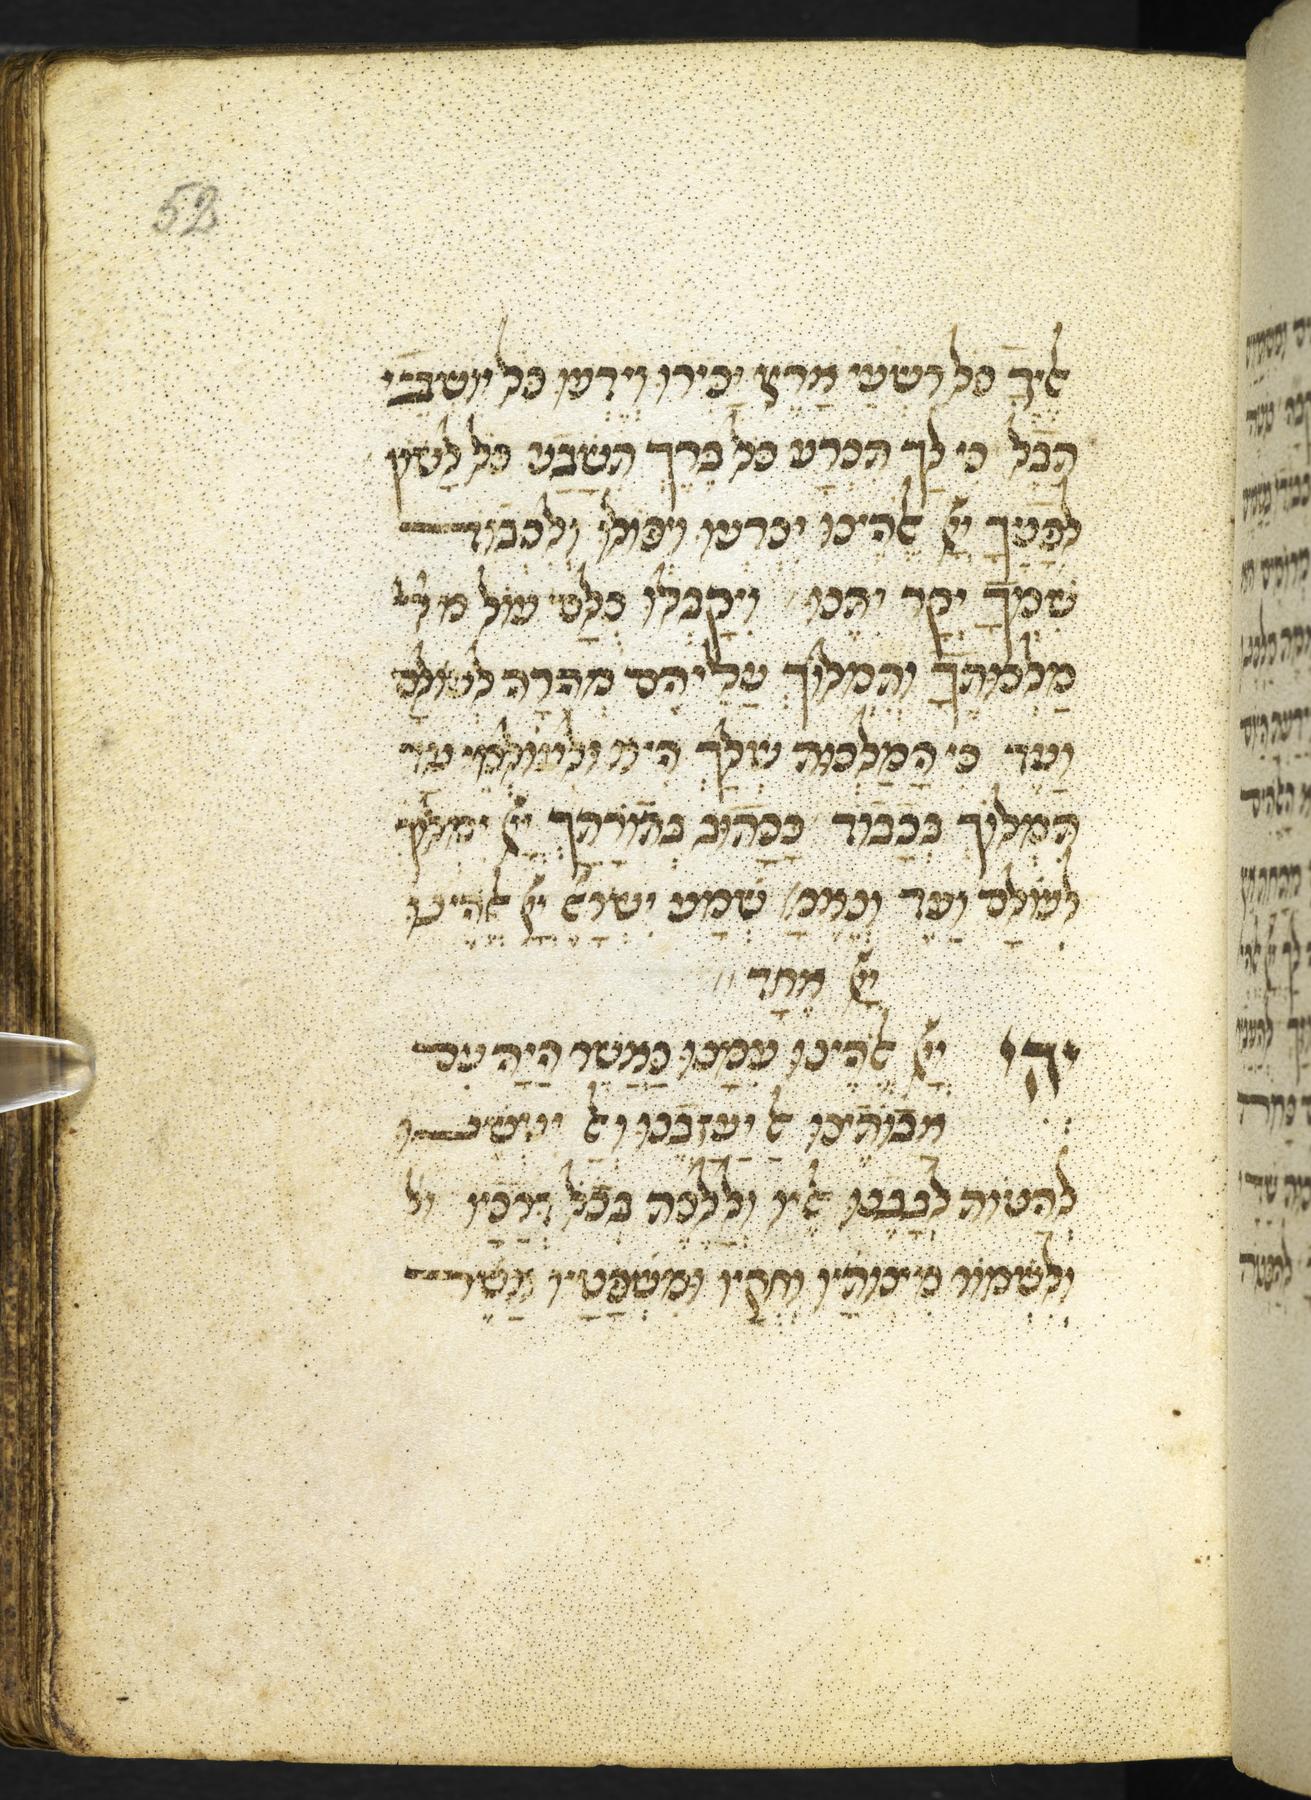 52
אליך כל רשעי ארץ יכירו וידעו כל יושבי
תבל כי לך תכרע כל ברך תשבע כל לשון
לפניך ייי אלהינו יכרעו ויפולו ולכבוד
שמך יקר יתנו ויקבלו כלם עול מל
מלכותך ותמלוך עליהם מהרה לעולם
ועד כי המלכות שלך היא ולעולמי עד
תמלוך בכבוד ככתוב בתורתך ייי ימלוך
לעולם ועד שמע ישראל ייי אלהינו
ייי אחד
יהי ייי אלהינו עמנו כאשר היה עם
אבותינו אל יעזבנו ואל יטשנו
להטות לבבנו אליו וללכת בכל דרכיו
ולשמור מצותיו וחקיו ומשפטיו אשר